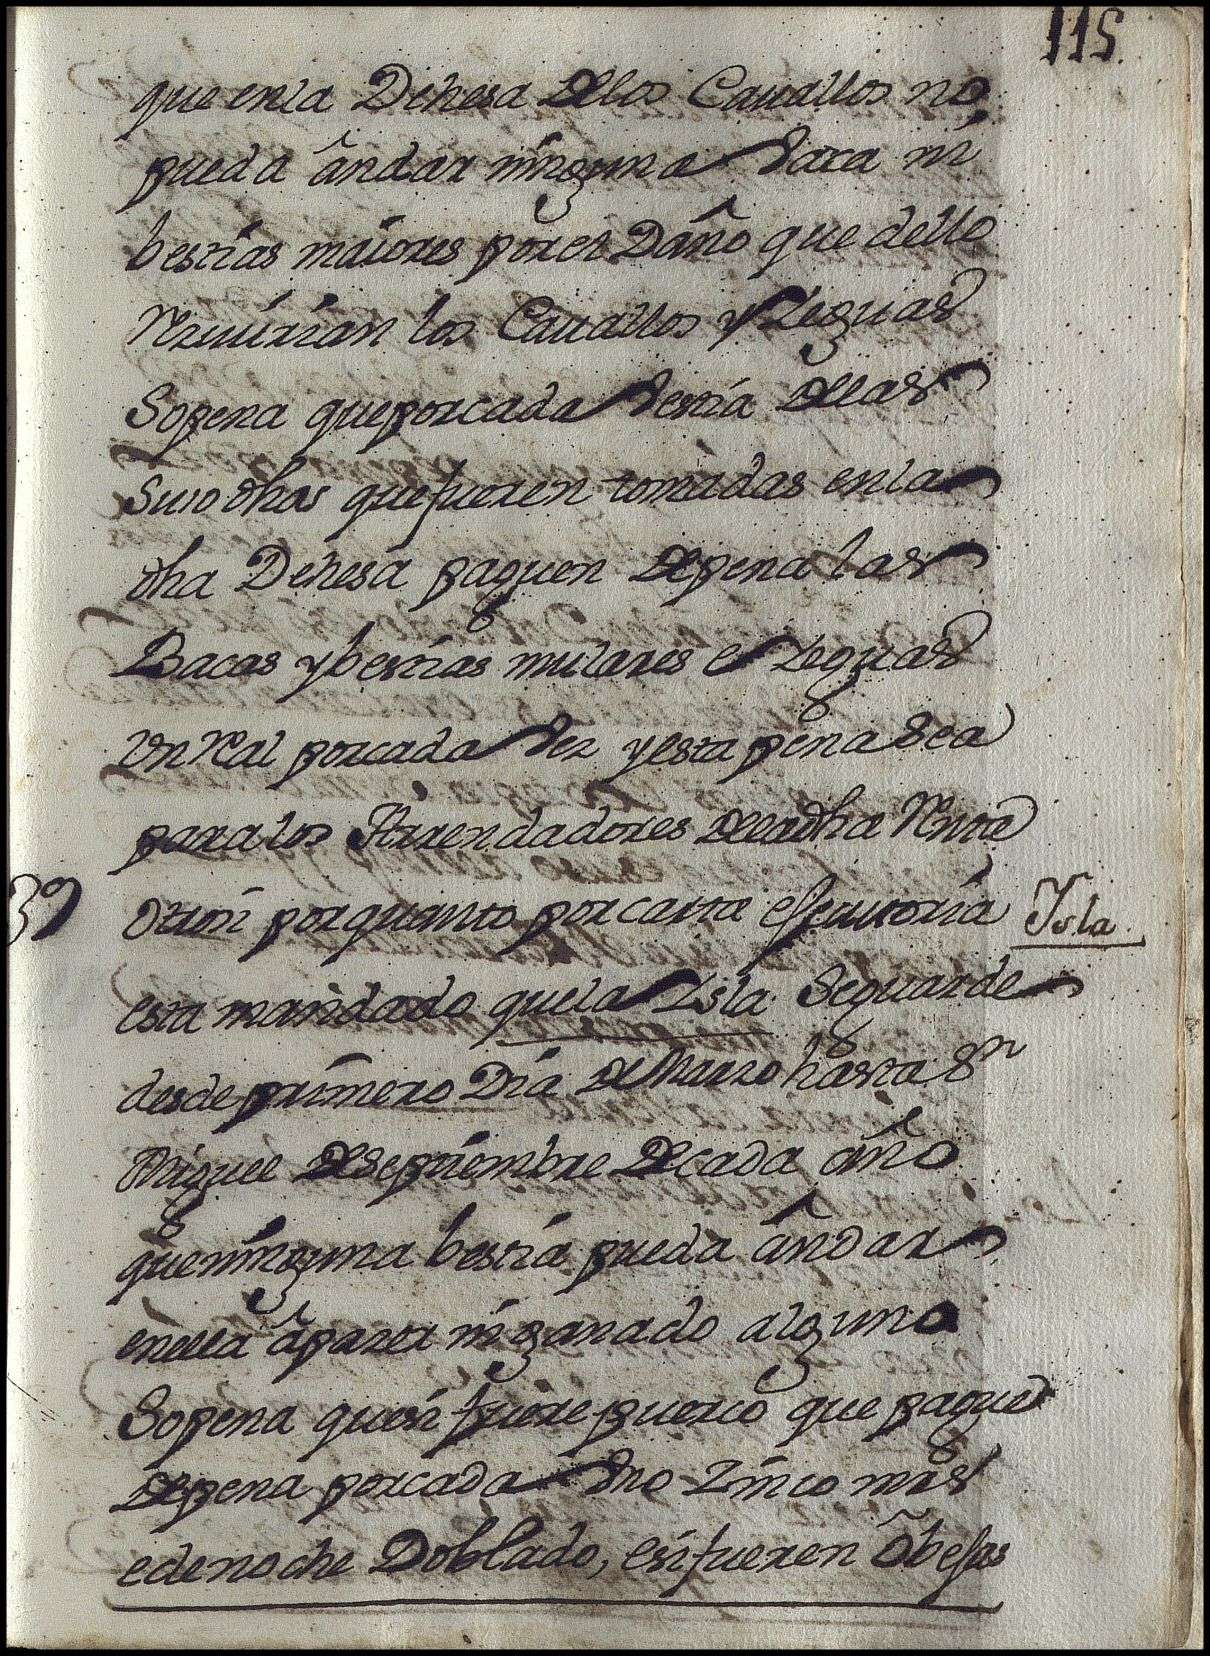 115.
que enla Dehesa delos Cauallos no
pueda ândar ninguna Vaca ni
bestias maiores por el Daño que dello
Rziuirian los Cauallos y Yeguas
Sopena que por cada Vestia dellas
Suso dhas que fueren tomadas enla
dha Dehesa paguen de pena las
Bacas y bestias mulares e Yeguas
Vn Real por cada Vez y esta pena sea
para los Arrendadores dela dha Renta
39 Otrosi por quanto por carta essecutoria Isla
esta mandado que la Isla Se guarde
desde primero Dia de Marzo hasta Sn
Miguel de Septiembre de cada año
que ninguna bestia pueda ândar
enella â pazer ni ganado alguno
Sopena que si fuere puerco que pague
de pena por cada Vno Zinco mrs
e de noche Doblado, e si fueren ôbejas